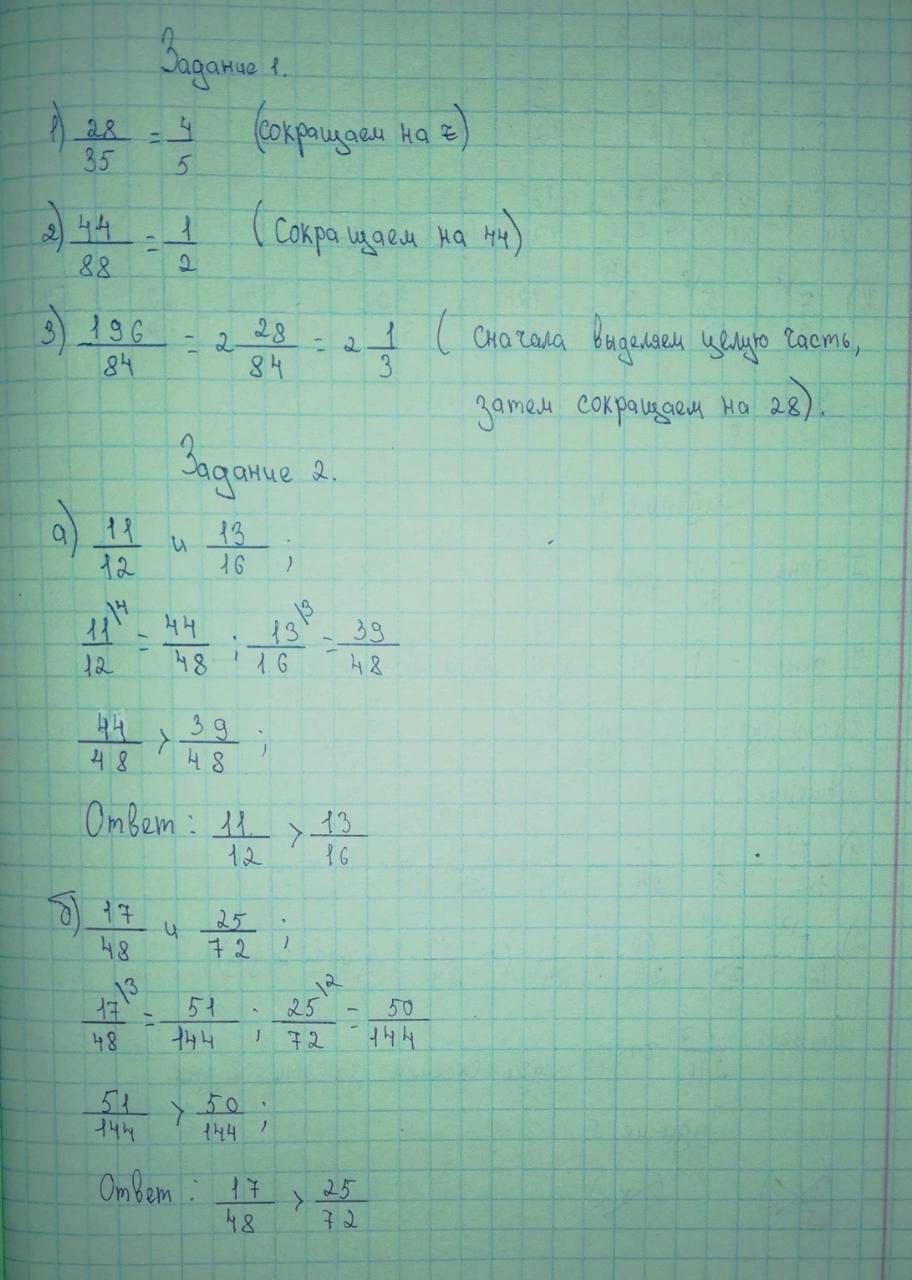 Задание 1.
1) 28/35 = 4/5 (сокращаем на 7)
2) 44/88 = 1/2 (Сокращаем на 44)
3) 196/84 = 2 28/84 = 2 1/3 ( сначала выделяем целую часть,
затем сокращаем на 28).
Задание 2.
а) 11/12 и 13/16 ;
11\4/12 = 44/48 ; 13\3/16 = 39/48
44/48 > 39/48 ;
Ответ: 11/12 > 13/16
б) 17/48 и 25/72 ;
17\3/48 = 51/144 ; 25\2/72 = 50/144
51/144 > 50/144 ;
Ответ: 17/48 > 25/72